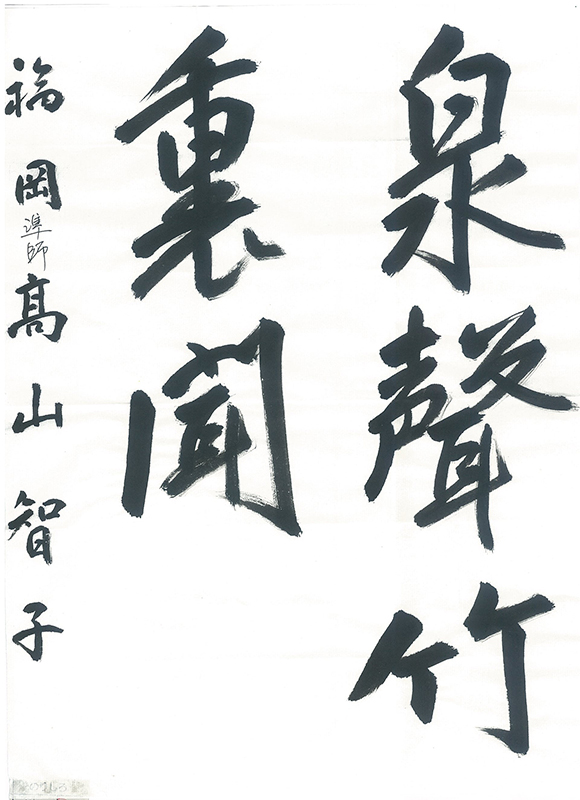 泉聲竹
裏聞
福岡準師髙山智子